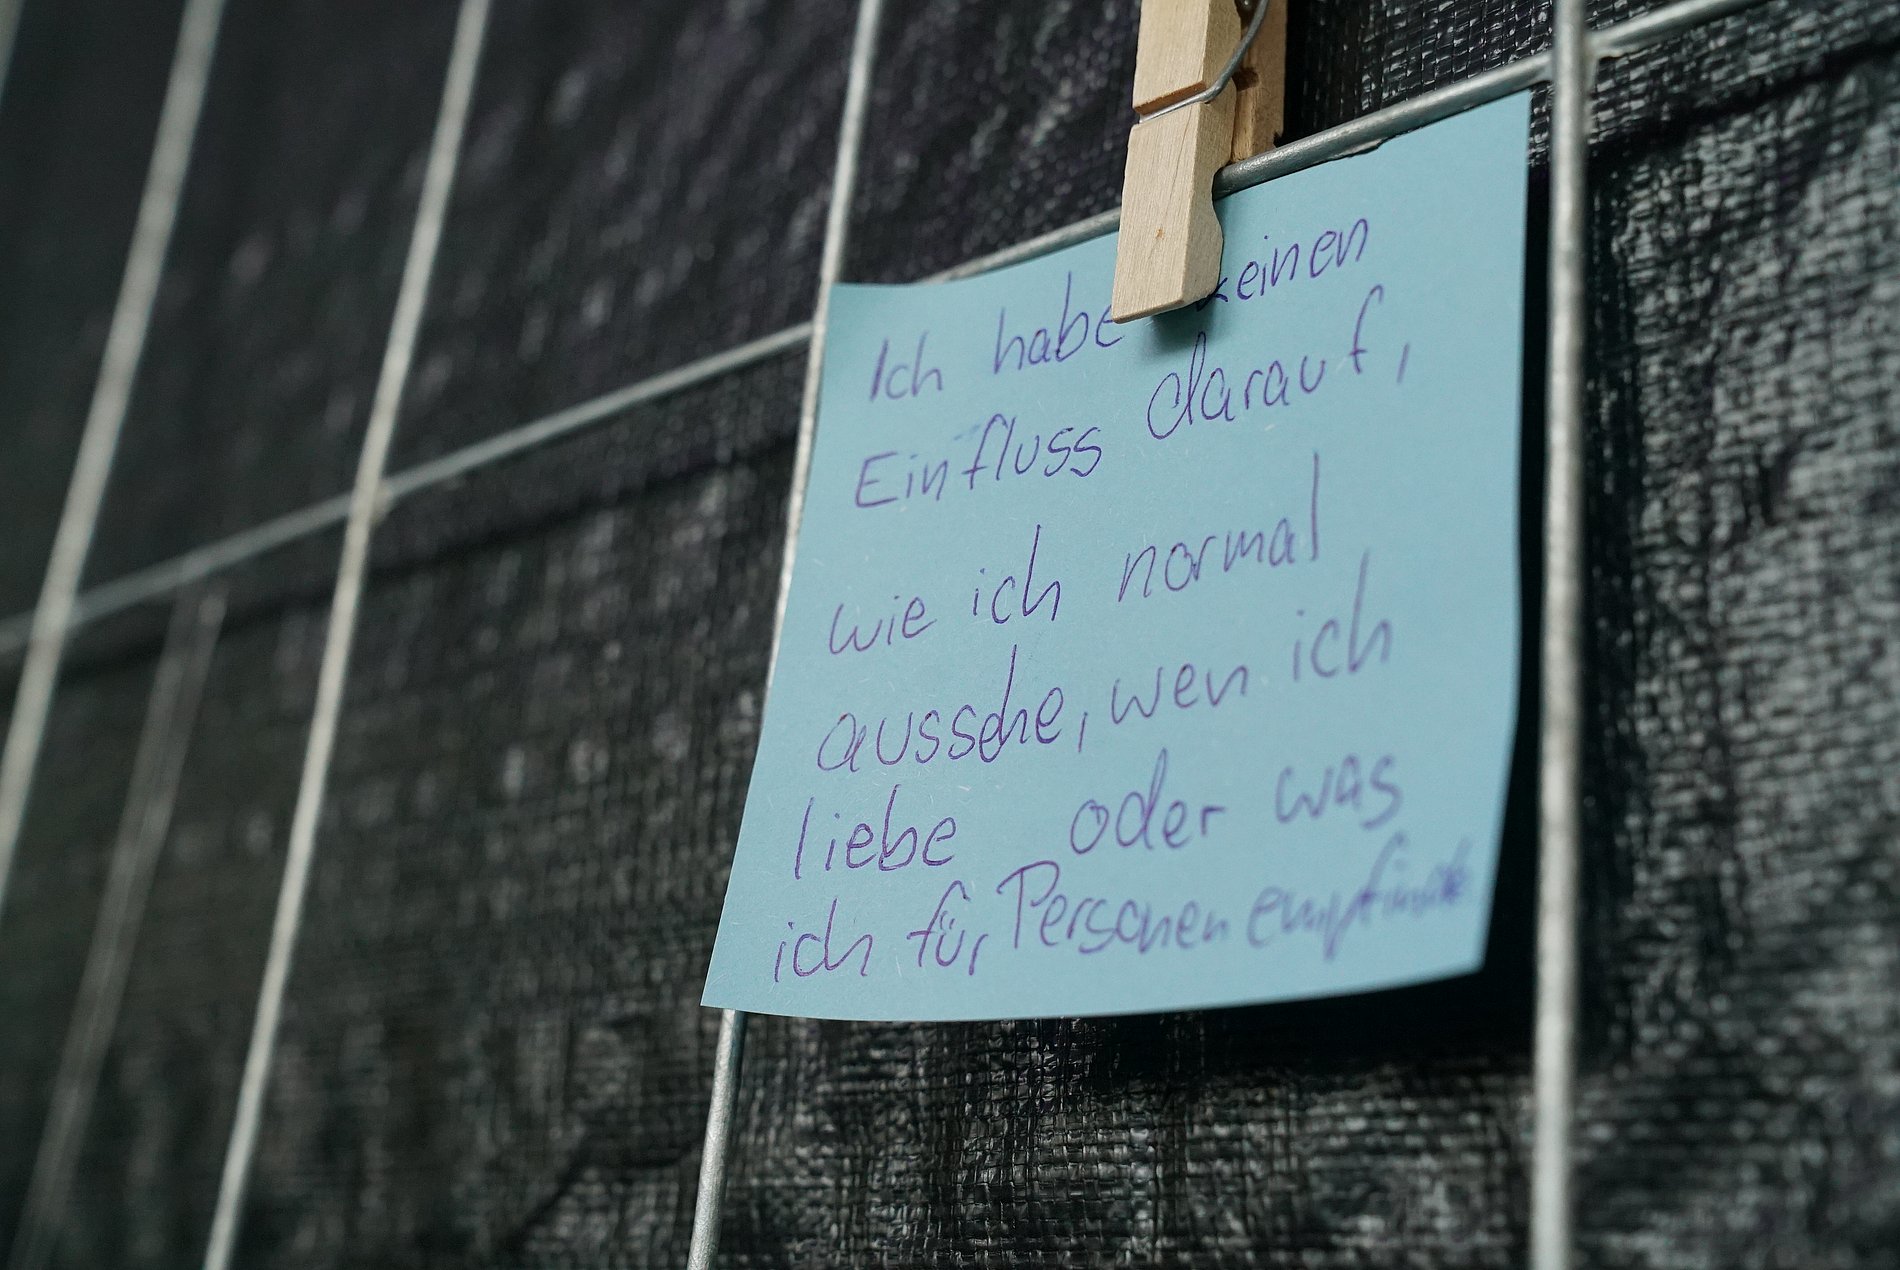 Ich habe keinen
Einfluss darauf,
wie ich normal
aussehe, wen ich
liebe oder was
ich für Personen empfinde